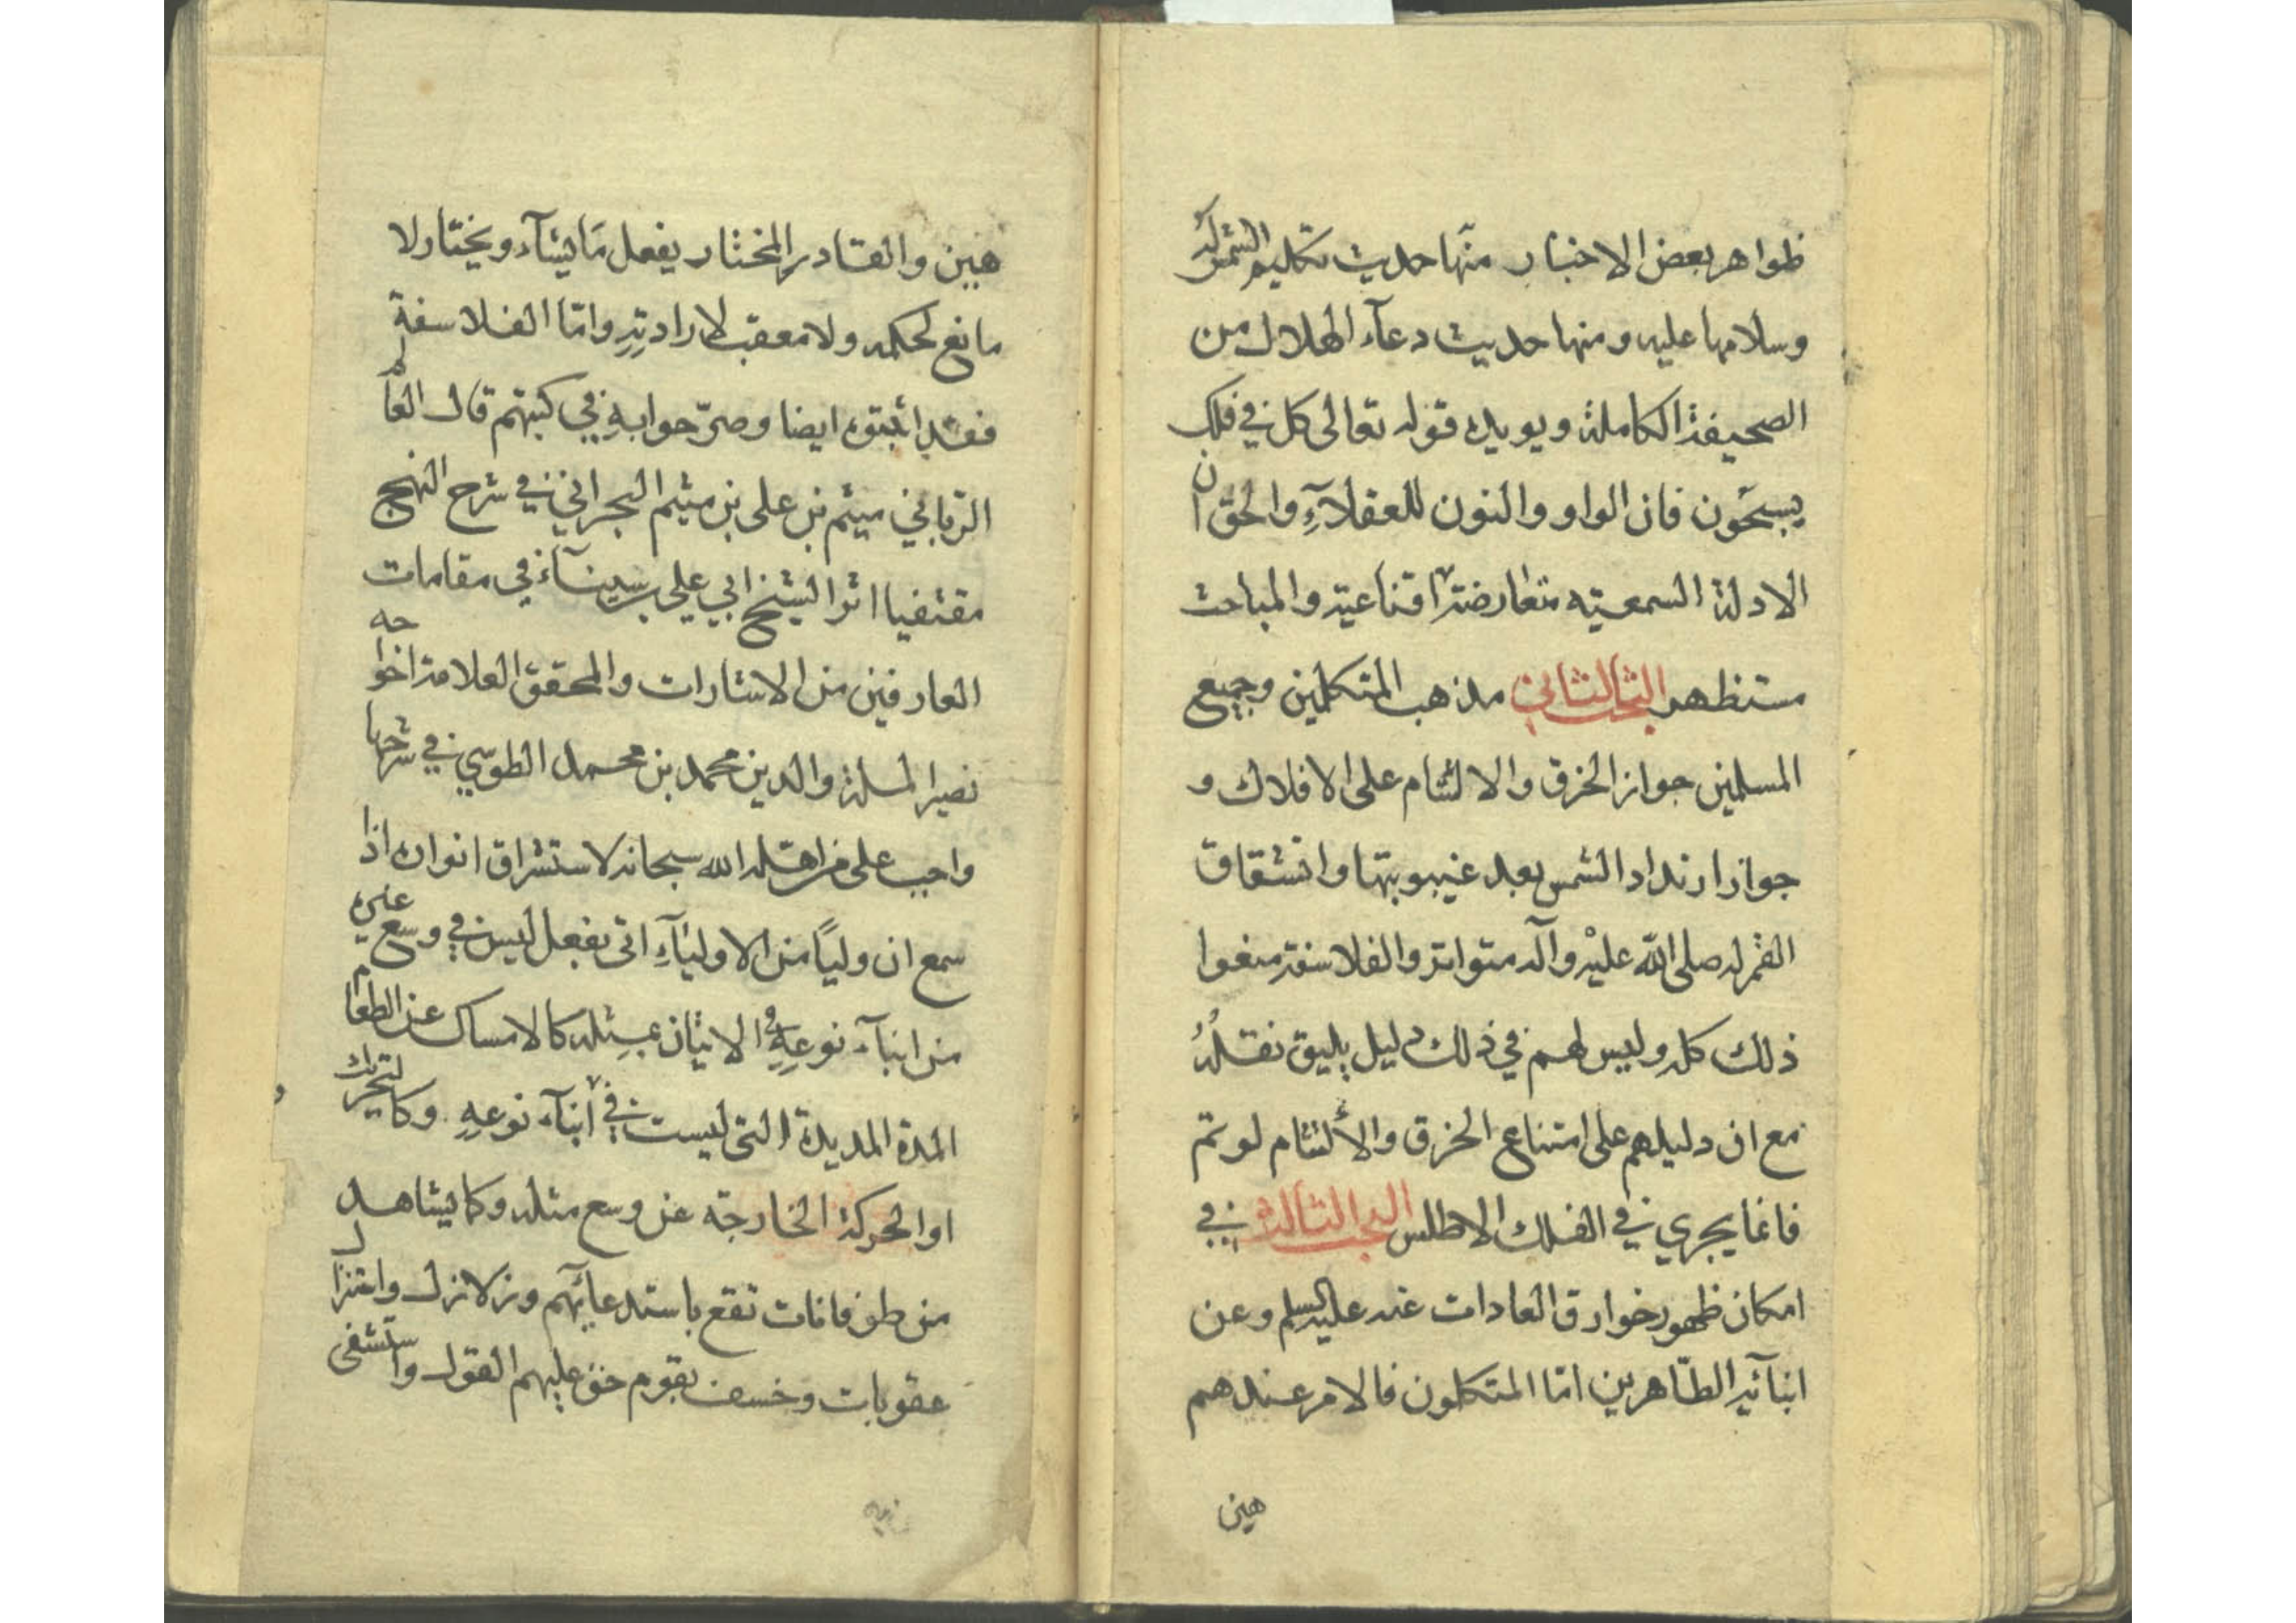 ظواهر بعض الاخبار منها حديث تكليم الشمس له
وسلامها عليه ومنها حديث دعآء الهلال من
الصحيفة الكاملة ويويده قوله تعالى كل في فلك
يسبحون فان الواو والنون للعقلآء والحق ان
الادلة السمعيته متعارضة اقناعية والمباحث
مستظهر البحث الثاني مذهب المتكلمين وجميع
المسلمين جواز الخرق والالتئام على الافلاك و
جواز ارتداد الشمس بعد غيبوبتها وانشقاق
القمر له صلى الله عليه وآله متواتر والفلاسفة منعوا
ذلك كله وليس لهم في ذلك دليل يليق نقله
مع ان دليلهم على امتناع الخرق والألتئام لو تم
فانما يجري في الفلك الاطلس البحث الثالث في
امكان ظهور خوارق العادات عنه عليه السلم وعن
ابنآئه الطاهرين امّا المتكلمون فالامر عندهم
هين
هين والقادر المختار يفعل مَا يشآء ويختار لا
مانع لحكمه ولا معقب لارادتِهِ وامّا الفلاسفة
فقد اثبتوه ايضا وصرّحوا بهِ في كتبهم قال العالم
الربّاني ميثم بن على بن ميثم البحراني في شرح النهج
مقتفيا اثر الشيخ ابي علي بن سينآء في مقامات
العارفين من الاشارات والمحقق العلامة اخواجه
نصير الملة والدين محمد بن محمد الطوسي في شرحها
واجب على من اهّله الله سبحانه لاستشراق انواره اذا
سمع ان وليًا من الاوليآءِ اتى بفعل ليس في وسع غيره
من ابنآء نوعِهِ الاتيان بمِثله كالامساك عن الطعام
المدة المديدة التى ليست في ابنآء نوعهِ وكالتحريك
او الحركة الخارجة عن وسع مثله وكما يشاهد
من طوفانات تقع باستدعائهم وزلازل واستنزال
عقوبات وخسف بقوم حق عليهم القول واستشفى